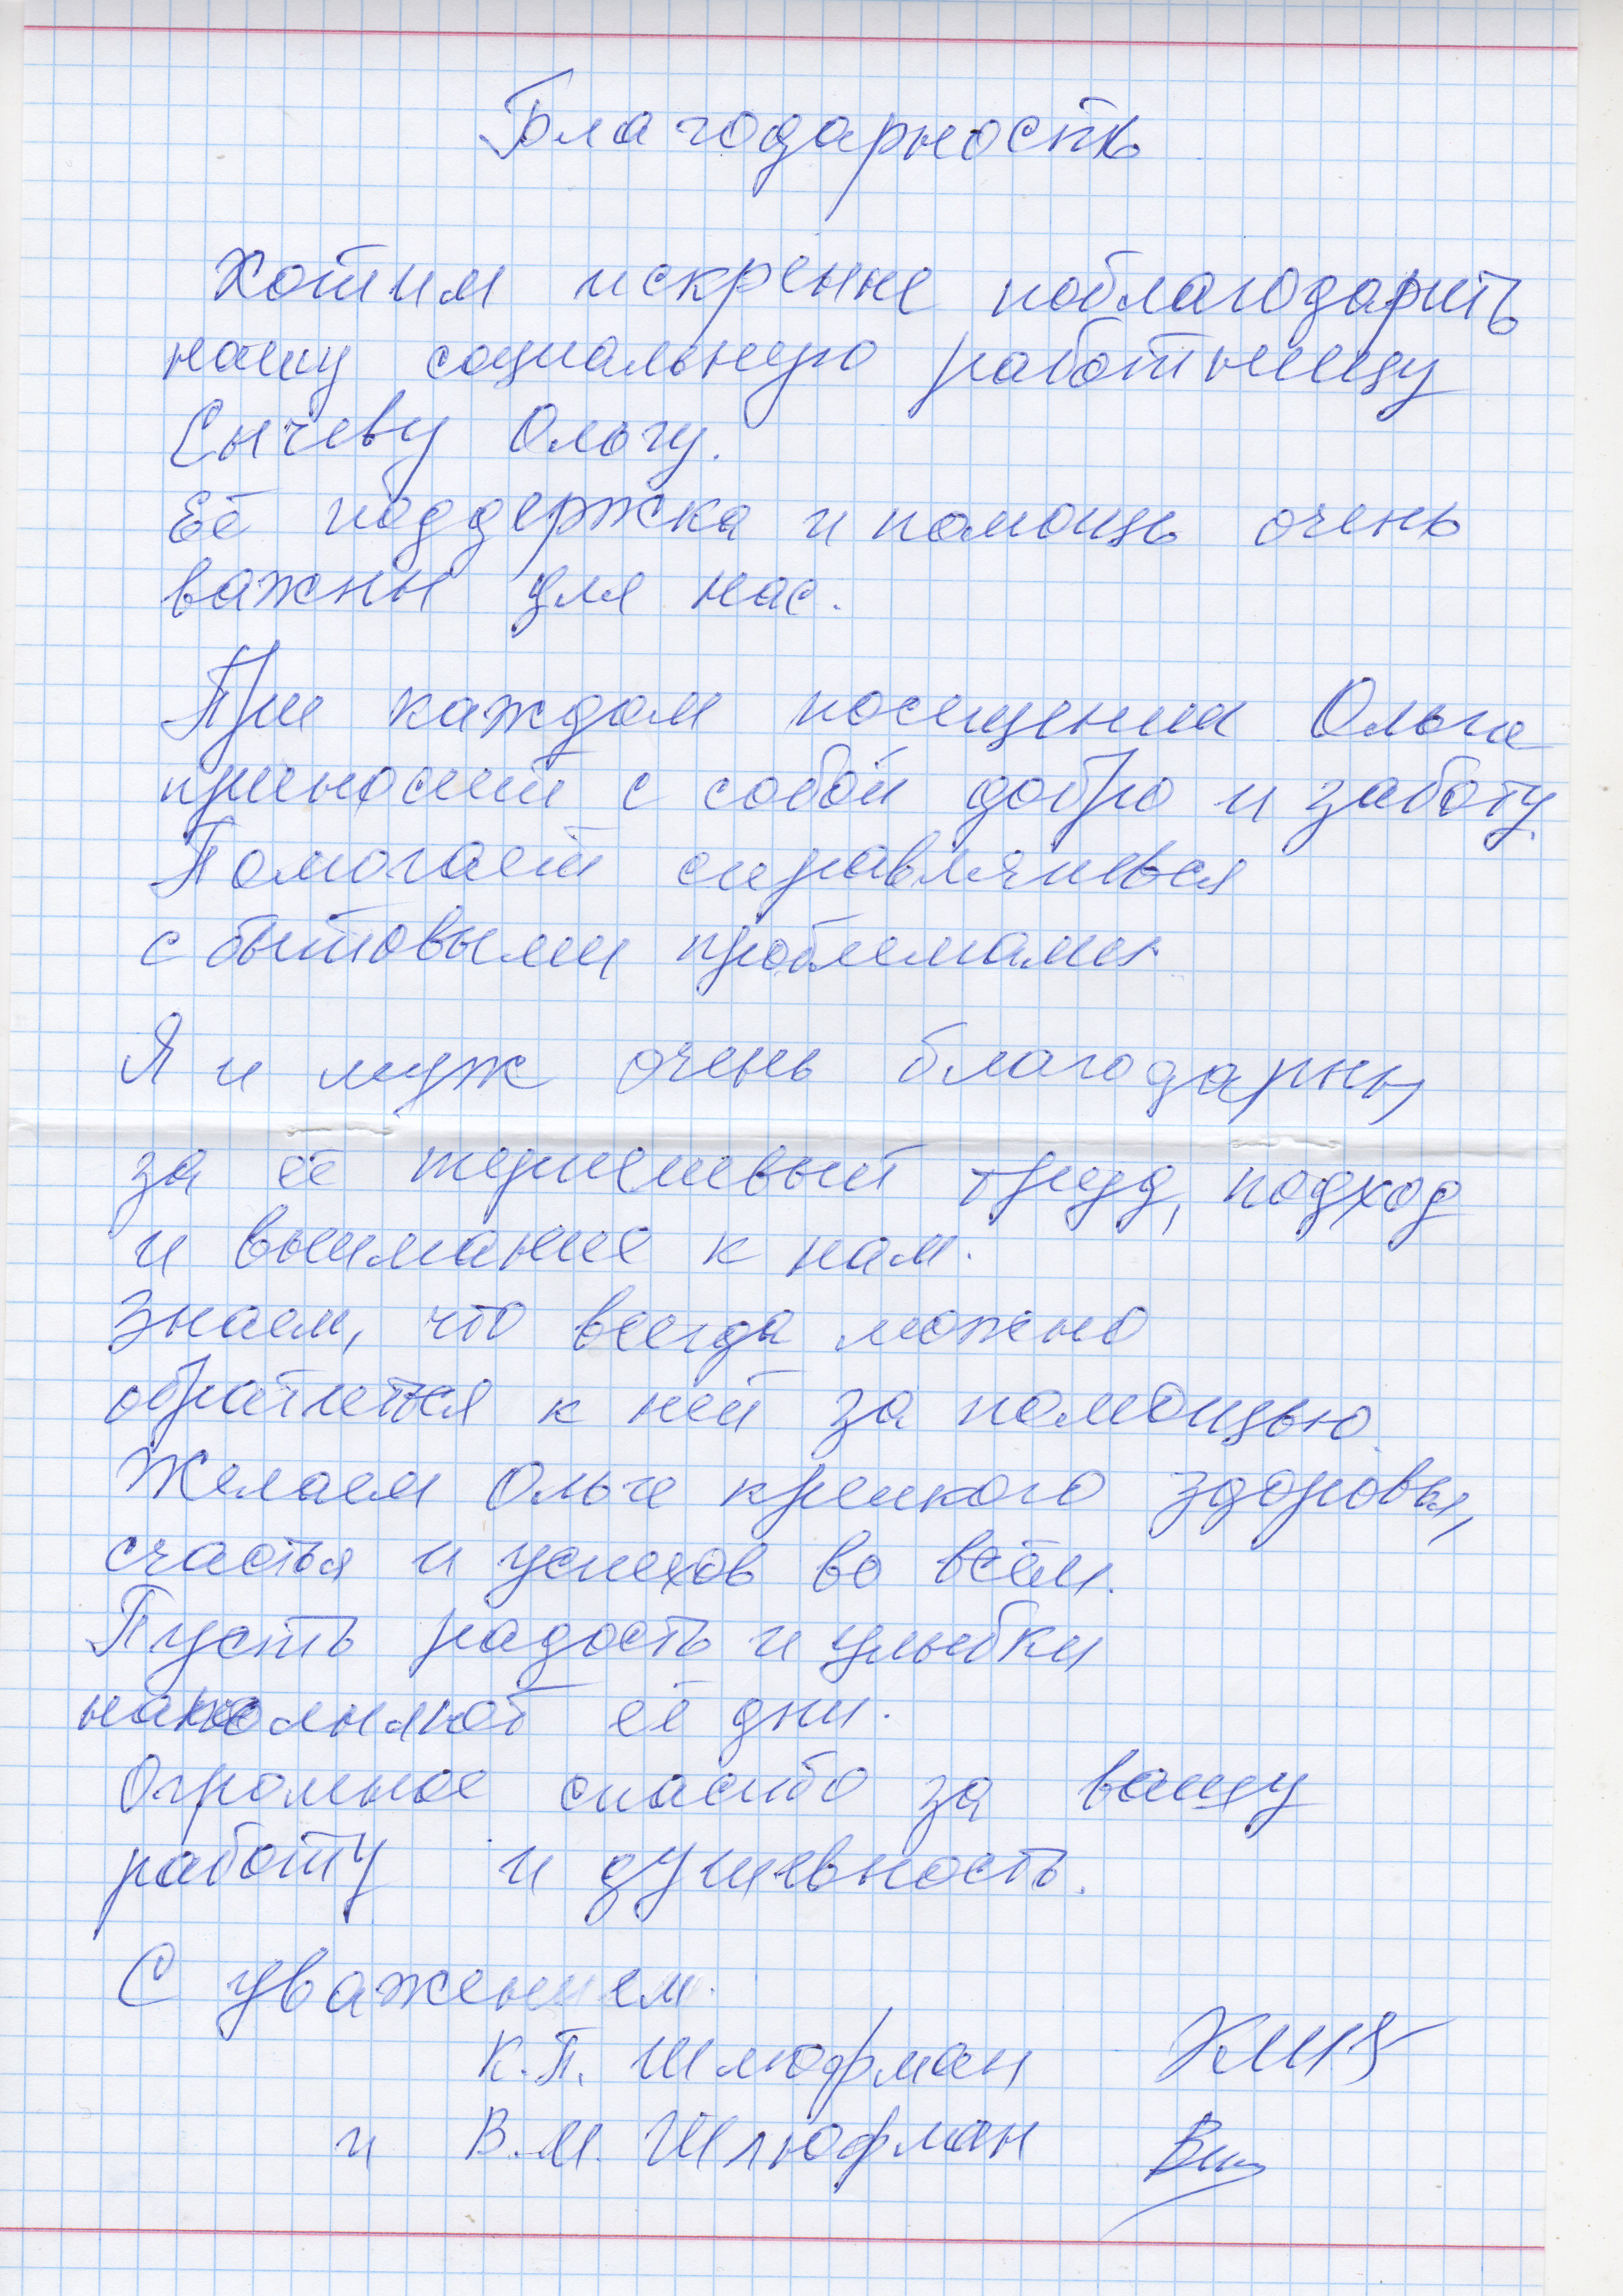 Благодарность
Хотим искренне поблагодарить
нашу социальную работницу
Сычеву Ольгу.
Её поддержка и помощь очень
важны для нас.
При каждом посещении Ольга
приносит с собой добро и заботу.
Помогает справляться
с бытовыми проблемами.
Я и муж очень благодарны,
за её терпеливый труд, подход
и внимание к нам.
Знаем, что всегда можно
обратиться к ней за помощью.
Желаем Ольге крепкого здоровья,
счастья и успехов во всём.
Пусть радость и улыбки
наполняют её дни.
Огромное спасибо за вашу
работу и душевность.
С уважением.
К.П. Шлюфман
и В.М. Шлюфман